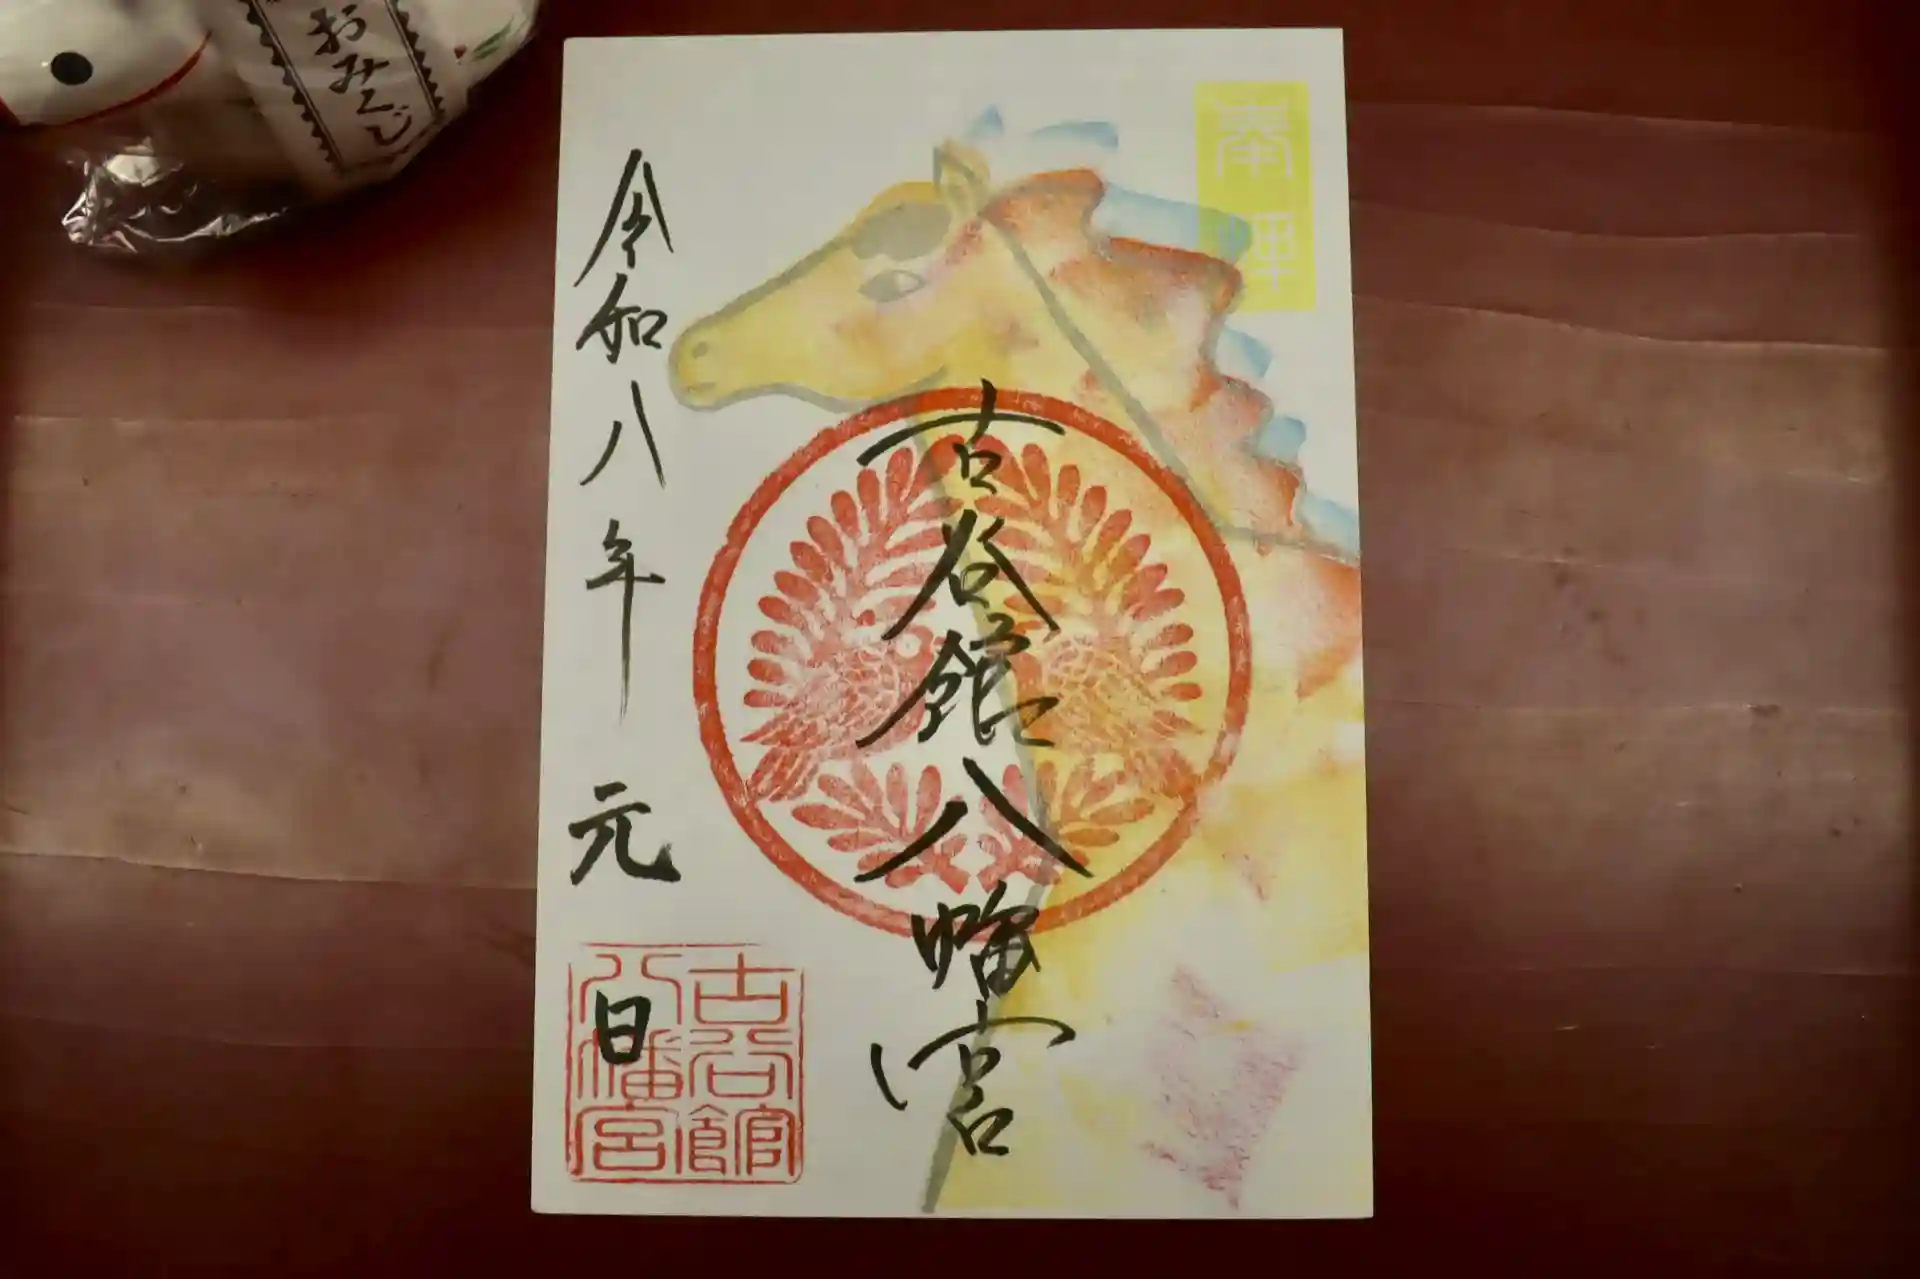 奉拝
古谷館八幡宮
令和八年元日
古谷館
八幡宮
おみくじ